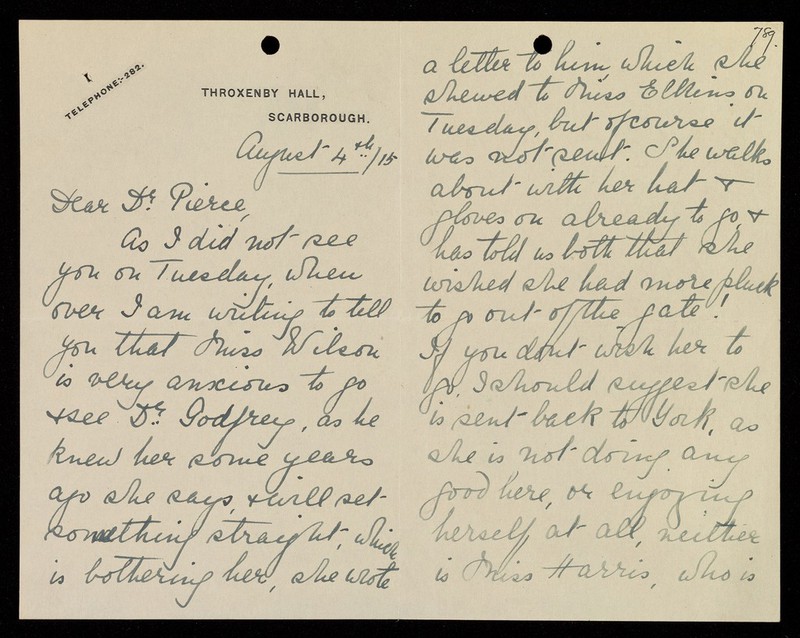 TELEPHONE:-282.
THROXENBY HALL,
SCARBOROUGH.
August 4th/15
Dear Dr. Pierce,
As I did not see
you on Tuesday, when
over I am writing to tell
you that Miss Wilson
is very anxious to go
& see Dr. Godfrey, as he
knew her some years
ago she says, & will set
something straight, which
is bothering her, she wrote
789.
a letter to him, which she
shewed to Miss Elkins on
Tuesday, but of course it
was not sent. She walks
about with her hat &
gloves on already to go, &
has told us both that she
wished she had more pluck
to go out of the gate!
If you dont wish her to
go, I should suggest she
is sent back to York, as
she is not doing any
good here, or enjoying
herself at all, neither
is Miss Harris, who is